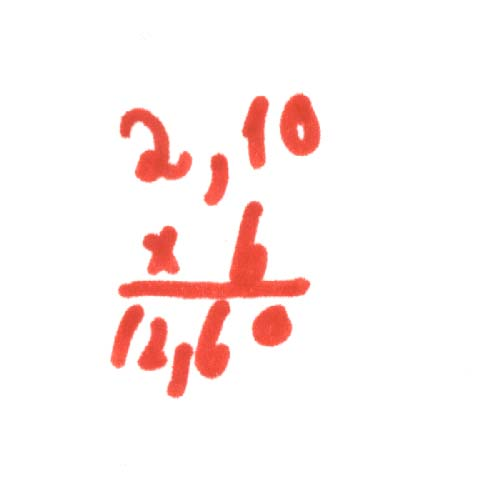 2,10
x 6
12,60